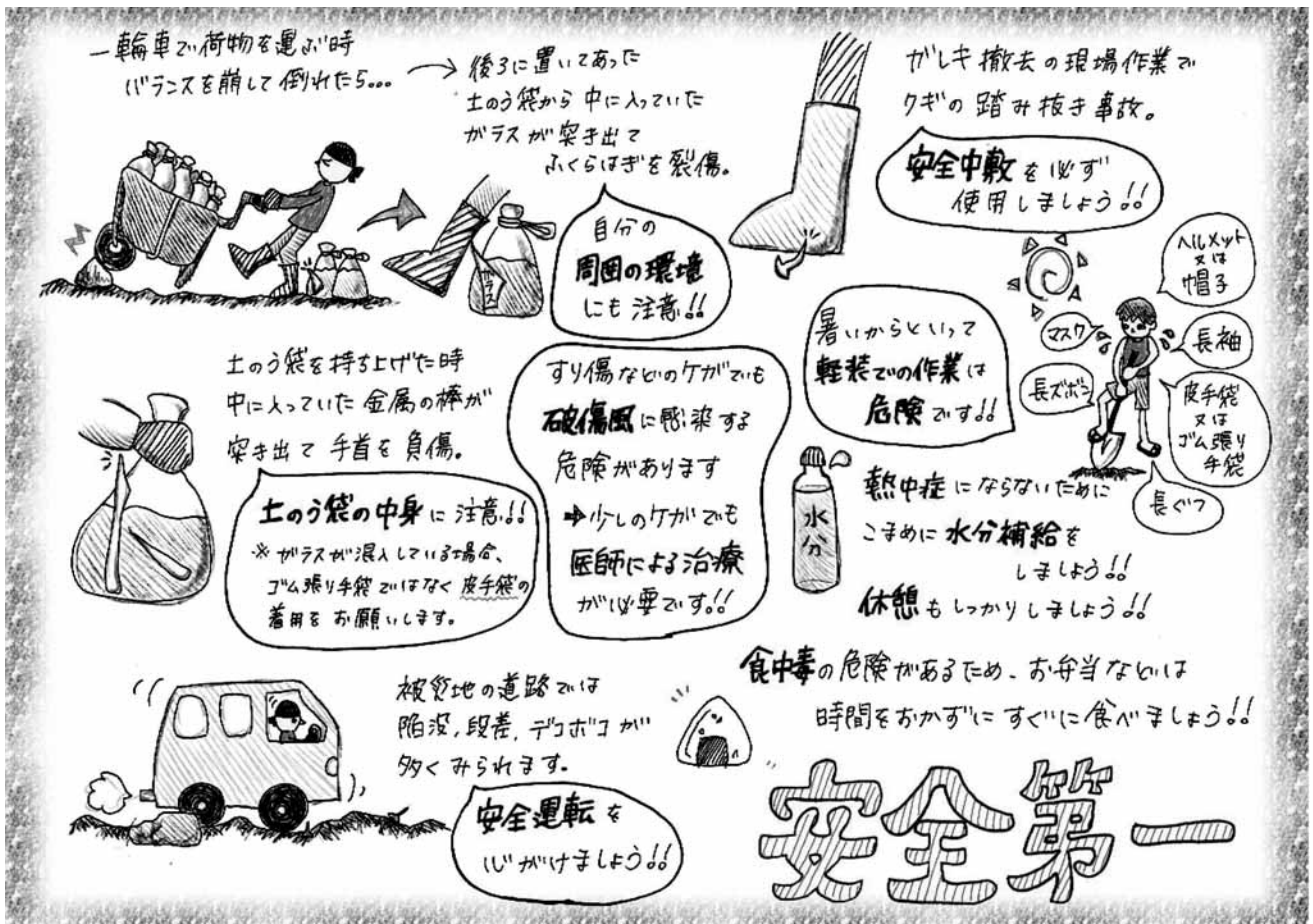 一輪車で荷物を運ぶ時
バランスを崩して倒れたら…
後ろに置いてあった
土のう袋から中に入っていた
ガラスが突き出て
ふくらはぎを裂傷。
ガラス
自分の
周囲の環境
にも注意!!
ガレキ撤去の現場作業で
クギの踏み抜き事故。
安全中敷を必ず
使用しましょう!!
土のう袋を持ち上げた時
中に入っていた金属の棒が
突き出て手首を負傷。
土のう袋の中身に注意!!
※ガラスが混入している場合、
ゴム張り手袋ではなく皮手袋の
着用をお願いします。
すり傷などのケガでも
破傷風に感染する
危険があります
➡少しのケガでも
医師による治療
が必要です!!
暑いからといって
軽装での作業は
危険です!!
ヘルメット
又は
帽子
マスク
長袖
長ズボン
皮手袋
又は
ゴム張り
手袋
長ぐつ
水分
熱中症にならないために
こまめに水分補給を
しましょう!!
休憩もしっかりしましょう!!
被災地の道路では
陥没,段差,デコボコが
多くみられます。
安全運転を
心がけましょう!!
食中毒の危険があるため、お弁当などは
時間をおかずにすぐに食べましょう!!
安全第一